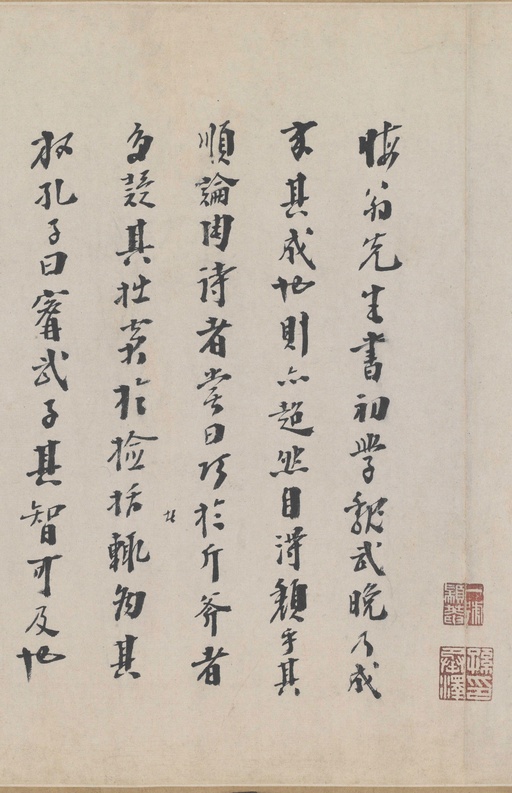 晦翁先生書初學魏武晚乃成
家其成也則亦超然自得頹乎其
順論陶詩者嘗曰巧於斤斧者
多疑其拙窘於撿括者輒病其
放孔子曰甯武子其智可及也
孫印承澤